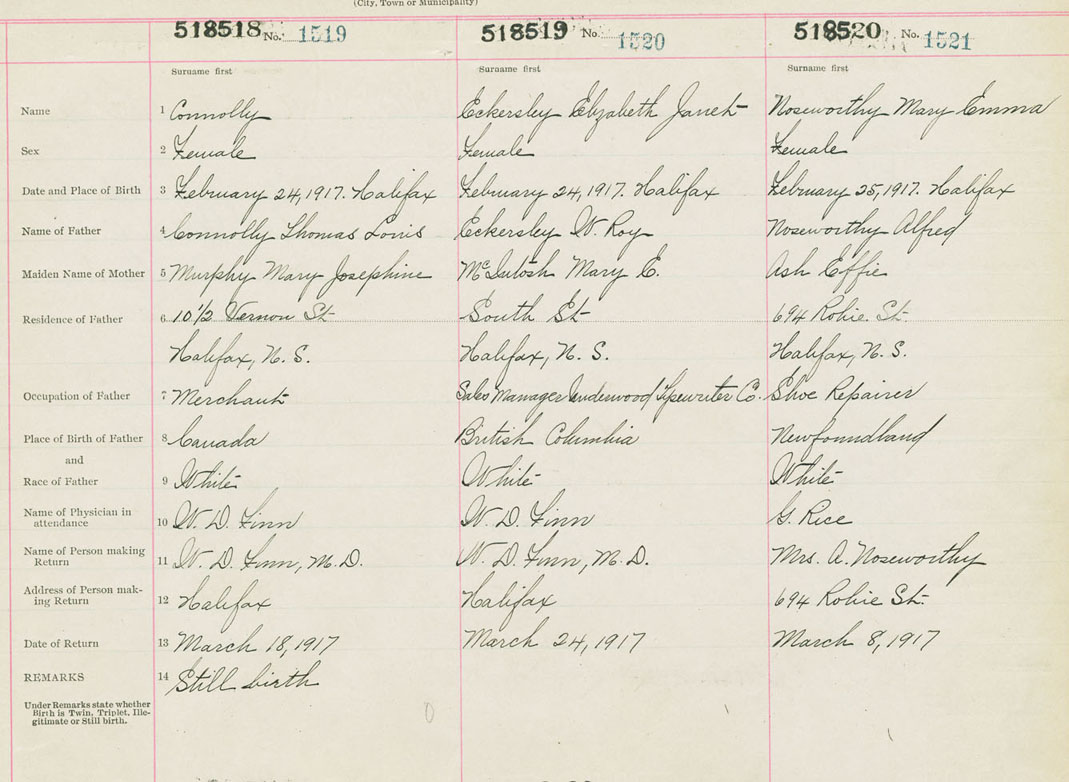 (City, Town or Municipality)
518518 No. 1519 518519 No. 1520 518520 No. 1521
Surname first Surname first Surname first
Name 1 Connolly Eckersley Elizabeth Janet Noseworthy Mary Emma
Sex 2 Female Female Female
Date and Place of Birth 3 February 24, 1917. Halifax February 24, 1917. Halifax February 25, 1917. Halifax
Name of Father 4 Connolly Thomas Louis Eckersley W. Roy Noseworthy Alfred
Maiden Name of Mother 5 Murphy Mary Josephine McIntosh Mary E. Ash Effie
Residence of Father 6 10 1/2 Vernon St South St 694 Robie St.
Halifax, N. S. Halifax, N. S. Halifax, N. S.
Occupation of Father 7 Merchant Sales Manager Underwood Typewriter Co. Shoe Repairer
Place of Birth of Father 8 Canada British Columbia Newfoundland
and
Race of Father 9 White White White
Name of Physician in
attendance 10 W. D. Finn W. D. Finn G. Rice
Name of Person making
Return 11 W. D. Finn, M. D. W. D. Finn, M. D. Mrs. A. Noseworthy
Address of Person mak-
ing Return 12 Halifax Halifax 694 Robie St.
Date of Return 13 March 18, 1917 March 24, 1917 March 8, 1917
REMARKS 14 Still birth
Under Remarks state whether
Birth is Twin, Triplet, Ille-
gitimate or Still birth.